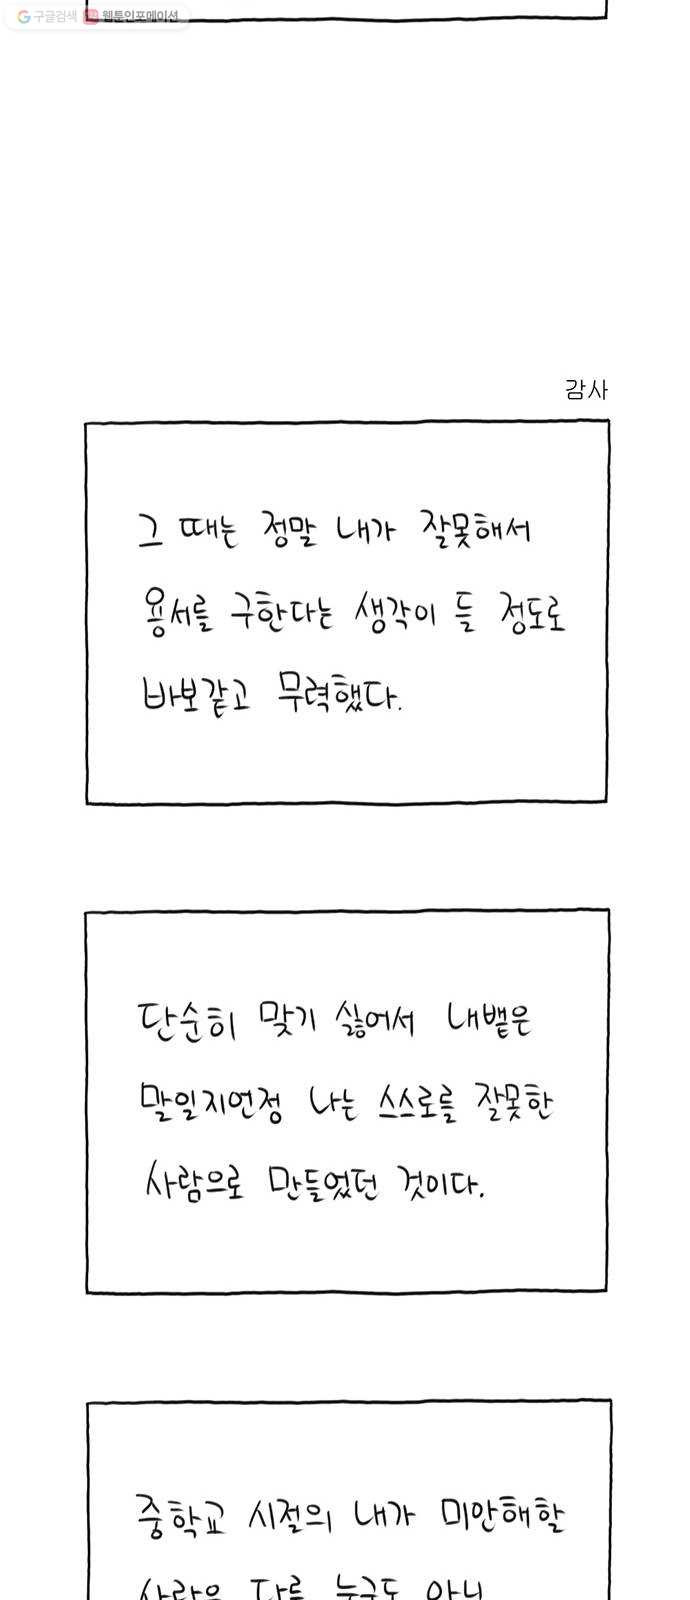 구글검색 웹툰인포메이션
감사
그 때는 정말 내가 잘못해서
용서를 구한다는 생각이 들 정도로
바보같고 무력했다.
단순히 맞기 싫어서 내뱉은
말일지언정 나는 스스로를 잘못한
사람으로 만들었던 것이다.
중학교 시절의 내가 미안해할
사람은 다른 누구도 아닌